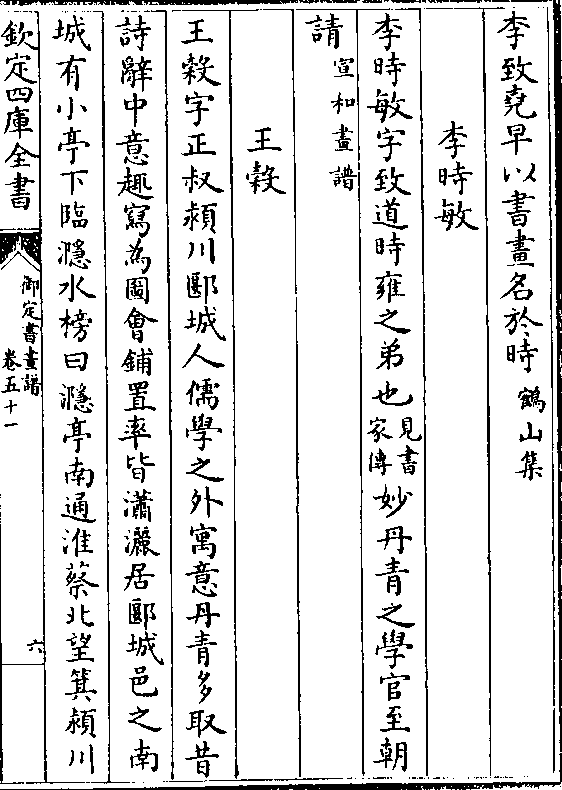 李致堯早以書畫名於時鶴山集
李時敏
李時敏字致道時雍之弟也見書家傳妙丹青之學官至朝
請宣和畫譜
王糓
王糓字正叔潁川郾城人儒學之外寓意丹青多取昔
詩辭中意趣寫為圖會鋪置率皆瀟灑居郾城邑之南
城有小亭下臨濦水榜曰濦亭南通淮蔡北望箕潁川
欽定四庫全書
御定書畫譜
卷五十一
六